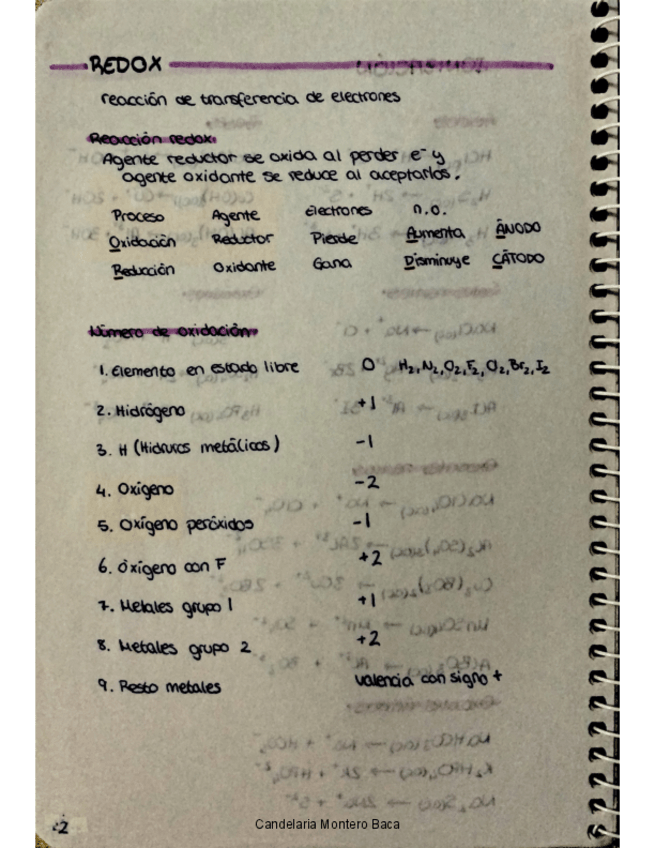 REDOX
reacción de transferencia de electrones
Reacción redox.
Agente reductor se oxida al perder e⁻ y
agente oxidante se reduce al aceptarlos.
Proceso Agente electrones n.o.
Oxidación Reductor Pierde Aumenta ÁNODO
Reducción Oxidante Gana Disminuye CÁTODO
Número de oxidación.
1. Elemento en estado libre 0 H₂, N₂, O₂, F₂, Cl₂, Br₂, I₂
2. Hidrógeno +1
3. H (Hidruros metálicos) -1
4. Oxígeno -2
5. Oxígeno peróxidos -1
6. Oxígeno con F +2
7. Metales grupo 1 +1
8. Metales grupo 2 +2
9. Resto metales valencia con signo +
2
Candelaria Montero Baca